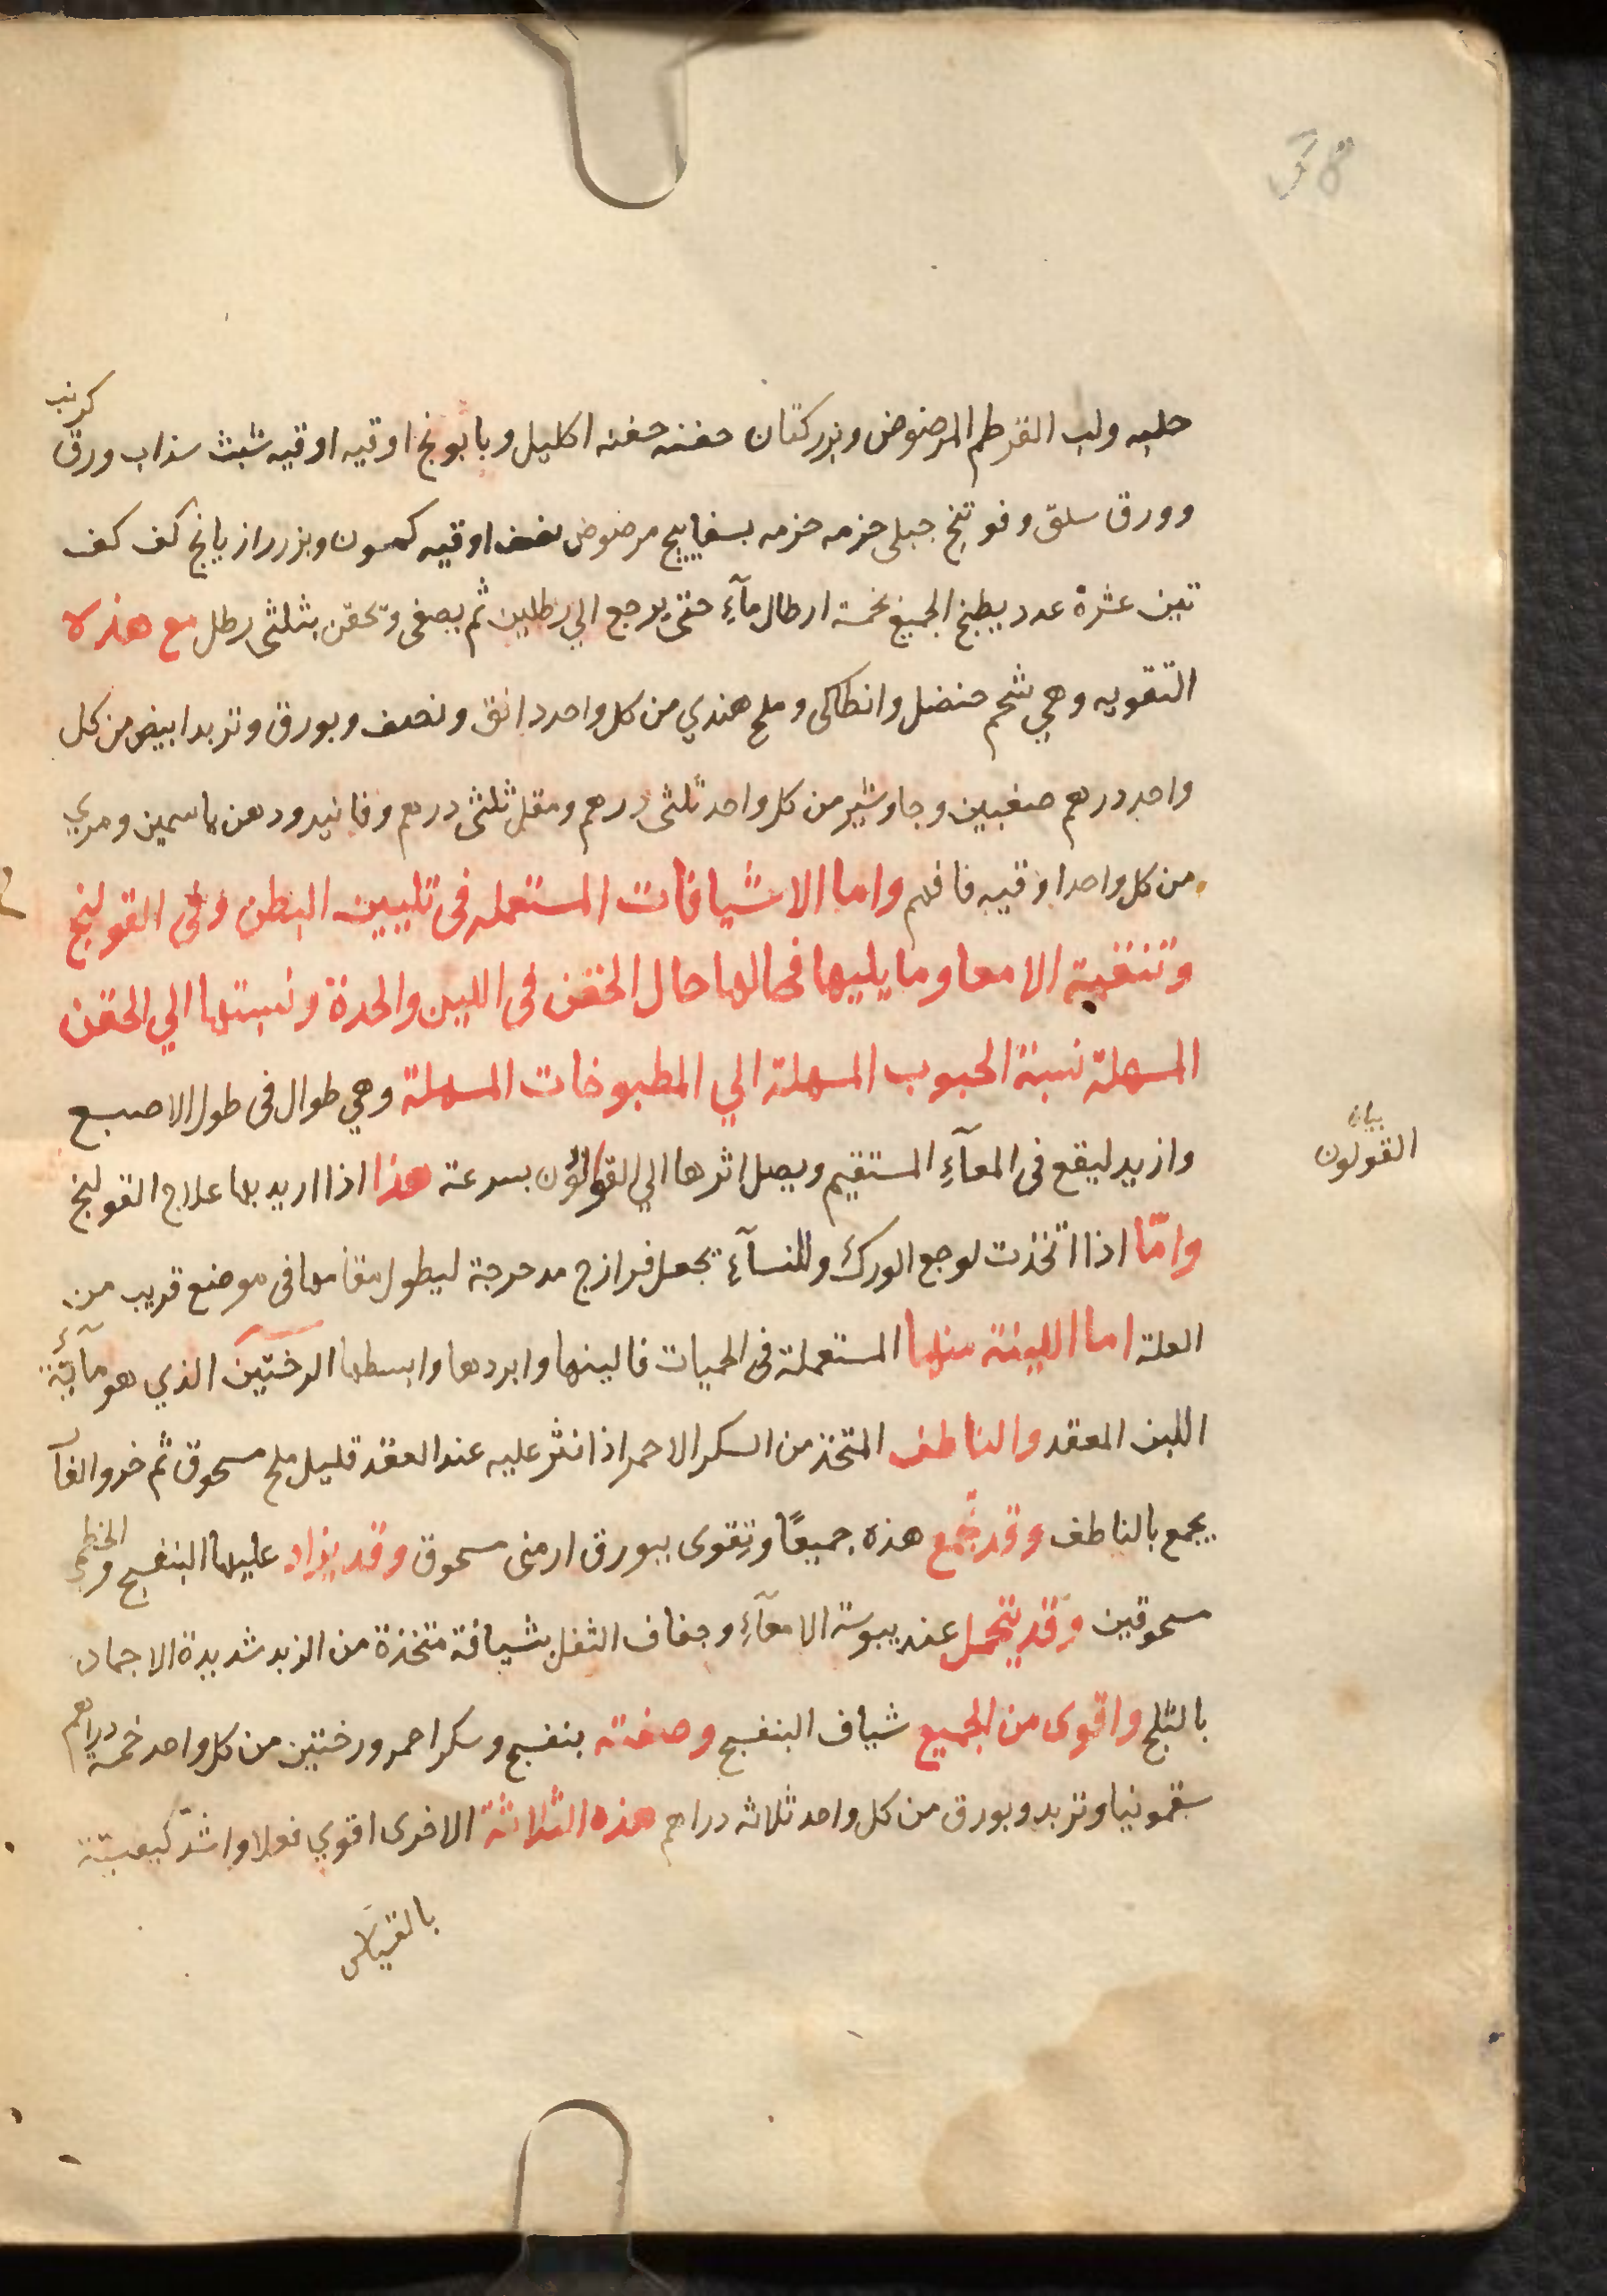 38
حلبه ولب القرطم المرضوض وبزر كتان حفنه حفنه اكليل وبابونج اوقيه اوقيه شبث سذاب ورق كرنب
وورق سلق وفوتنج جبلى حزمه حزمه بسفايج مرضوض نصف اوقيه كمون وبزر رازيانج كف كف
تين عشرة عدد يطبخ الجميع بخمسة ارطال مآءِ حتى يرجع الي رطلين ثم يصفى وتحقن بثلثى رطل مع هذه
التقويه وهي شحم حنضل وانطاكى وملح هندي من كل واحد دانق ونصف وبورق وتربد ابيض من كل
واحد درهم صغبين وجاوشير من كل واحد ثلثى درهم ومقل ثلثى درهم وفانيد ودهن ياسمين ومري
من كل واحد اوقيه فافهم واما الاشيافات المستعمله فى تليين البطن وفى القولنج
وتنقية الامعا وما يليها فحالها حال الحقن فى اللين والحدة ونسبتها الي الحقن
المسهلة نسبة الحبوب المسهلة الي المطبوخات المسهلة وهي طوال فى طول الاصبع
وازيد ليقع فى المعآءِ المستقيم ويصل اثرها الي القولون بسرعة هذا اذا اريد بها علاج القولنج
بيان
القولون
وامّا اذا اتخذت لوجع الورك وللنسآءِ تجعل فرازج مدحرجة ليطول مقامها فى موضع قريب من
العلة اما اللينة منها المستعملة فى الحميات فالينها وابردها وابسطها الرختين الذي هو مآئية
اللبن المعقد والناطف المتخذ من السكر الاحمر اذا نثر عليه عند العقد قليل ملح مسحوق ثم خرو الفآ
يجمع بالناطف وقد تجمع هذه جميعًا وتقوى ببورق ارمنى مسحوق وقد يزاد عليها البنفسج والخطمي
مسحوقين وقد يتحمل عند يبوسة الامعآءِ وجفاف الثفل بشيافة متخذة من الزبد شديدة الاجماد
بالثلج واقوى من الجميع شياف البنفسج وصفته بنفسج وسكر احمر ورختين من كل واحد خمسة دراهم
سقمونيا وتربد وبورق من كل واحد ثلاثه دراهم هذه الثلاثة الاخرى اقوي فعلا واشدّ كيفيّة
بالقياس